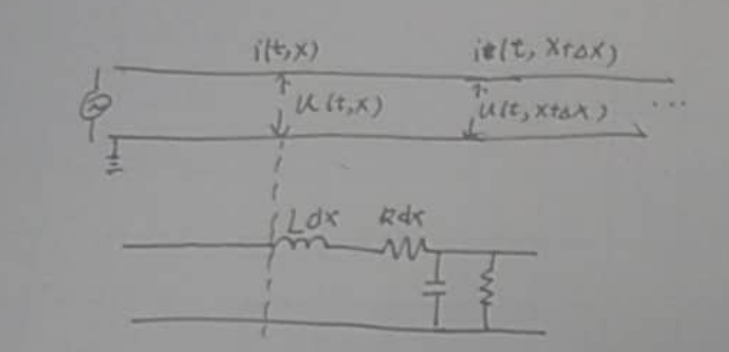 i(t,x) i(t, x+Δx)
u(t,x) u(t, x+Δx) ...
Ldx Rdx